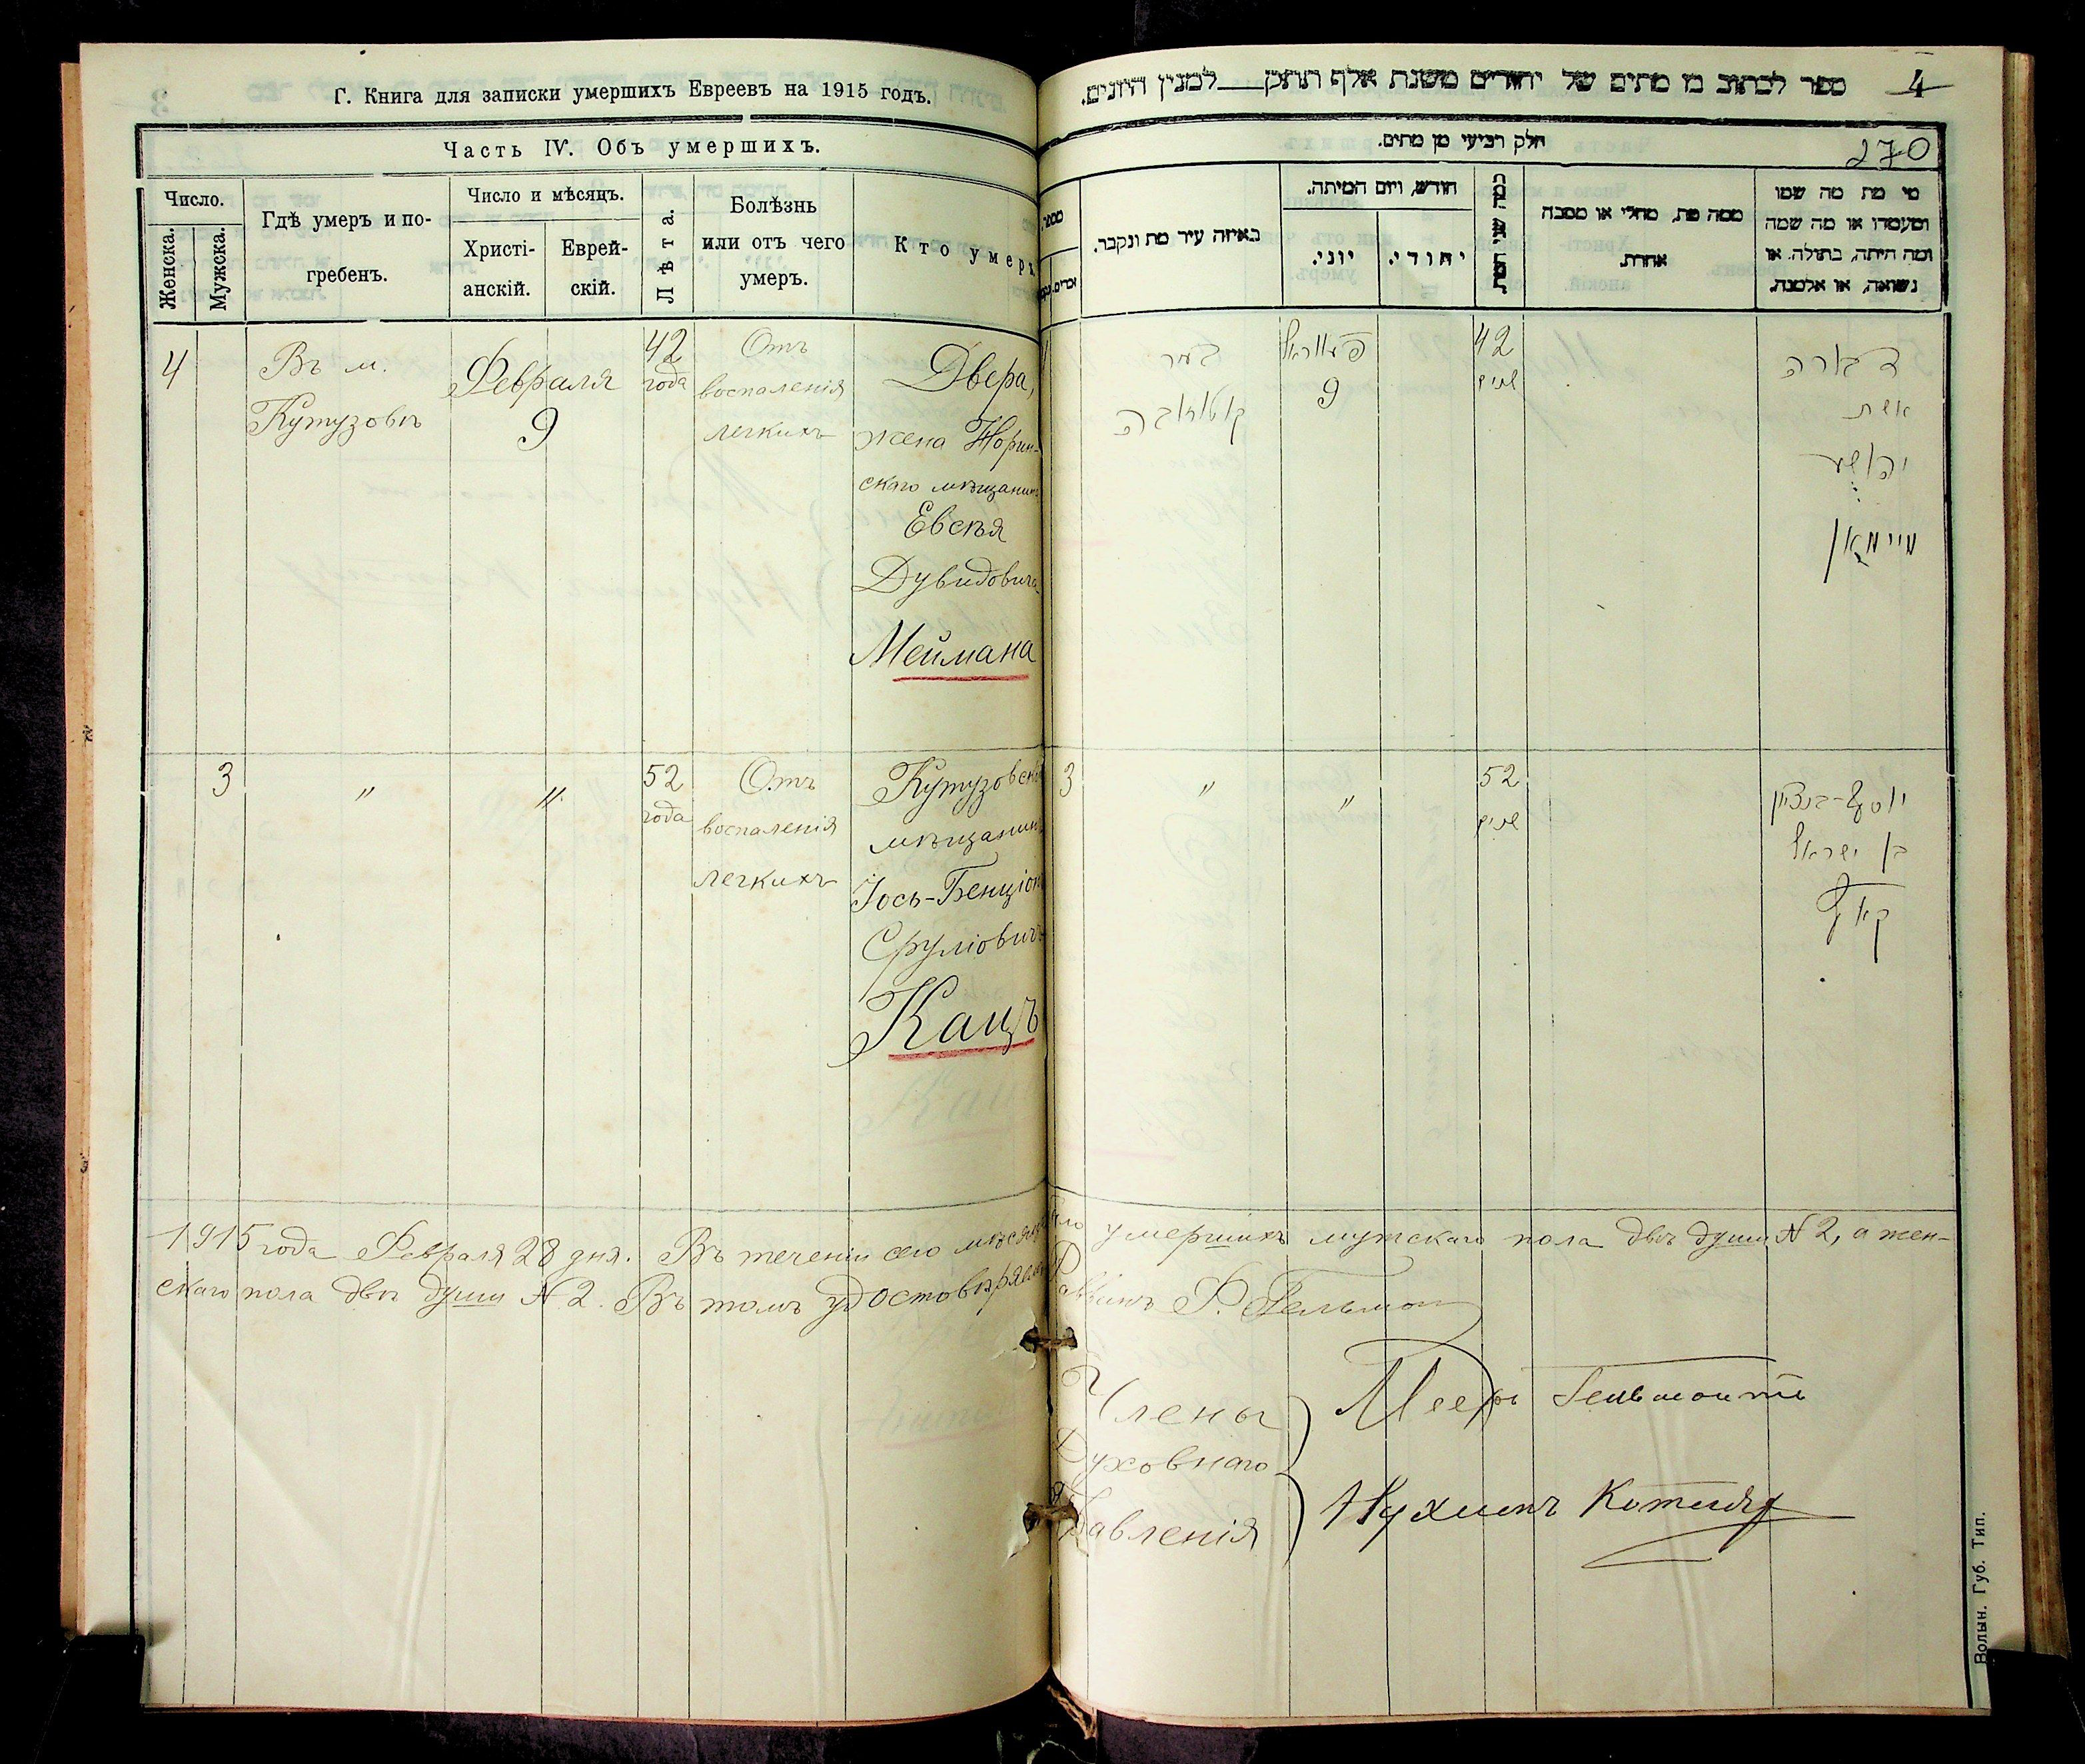 Г. Книга для записки умершихъ Евреевъ на 1915 годъ.
Часть IV. Объ умершихъ.
Число.
Женска.
Мужска.
Гдѣ умеръ и по-
гребенъ.
Число и мѣсяцъ.
Христі-
анскій.
Еврей-
скій.
Лѣта.
Болѣзнь
или отъ чего
умеръ.
Кто умеръ
4
Въ м.
Кутузовъ
Февраля
9
42
года
Отъ
воспаленія
легкихъ
Двера,
жена Норин-
скаго мѣщанина
Евсѣя
Дувидовича
Меймана
3
"
"
52
года
Отъ
воспаленія
легкихъ
Кутузовскій
мѣщанинъ
Іось-Бенціонъ
Сруліовичъ
Кацъ
1915 года Февраля 28 дня. Въ теченіи сего мѣсяца
скаго пола двѣ души № 2. Въ томъ удостовѣряемъ
4
ספר לכתוב בו מתים של יהודים משנת אלף תתק למנין היונים.
270
חלק רביעי מן מתים.
מספר
זכרים.
באיזה עיר מת ונקבר.
חודש, ויום המיתה.
יוני.
יהודי.
כמה שני המת.
ממה מת, מחלי או מסבה
אחרת.
מי מת מה שמו
ומעמדו או מה שמה
ומה היתה, בתולה, או
נשואה, או אלמנה.
בעיר
קוטוזובה
פעווראל
9
42
שנים
דבורה
אשת
יהושע
מיימאן
3
"
"
52
שנים
יוסף-בנציון
בן ישראל
קאץ
умершихъ мужскаго пола двѣ души № 2, а жен-
Раввинъ Ф. Гельман
Члены
Духовнаго
Правленія
Мееръ Гельмонтъ
Нухимъ Котляр
Волын. Губ. Тип.